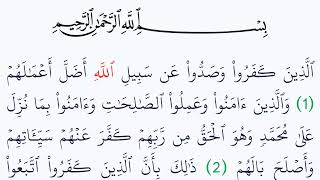 بِسْمِ اللَّهِ الرَّحْمَٰنِ الرَّحِيمِ
ٱلَّذِينَ كَفَرُوا۟ وَصَدُّوا۟ عَن سَبِيلِ ٱللَّهِ أَضَلَّ أَعْمَٰلَهُمْ
(1) وَٱلَّذِينَ ءَامَنُوا۟ وَعَمِلُوا۟ ٱلصَّٰلِحَٰتِ وَءَامَنُوا۟ بِمَا نُزِّلَ
عَلَىٰ مُحَمَّدٍ وَهُوَ ٱلْحَقُّ مِن رَّبِّهِمْ كَفَّرَ عَنْهُمْ سَيِّـَٔاتِهِمْ
وَأَصْلَحَ بَالَهُمْ (2) ذَٰلِكَ بِأَنَّ ٱلَّذِينَ كَفَرُوا۟ ٱتَّبَعُوا۟